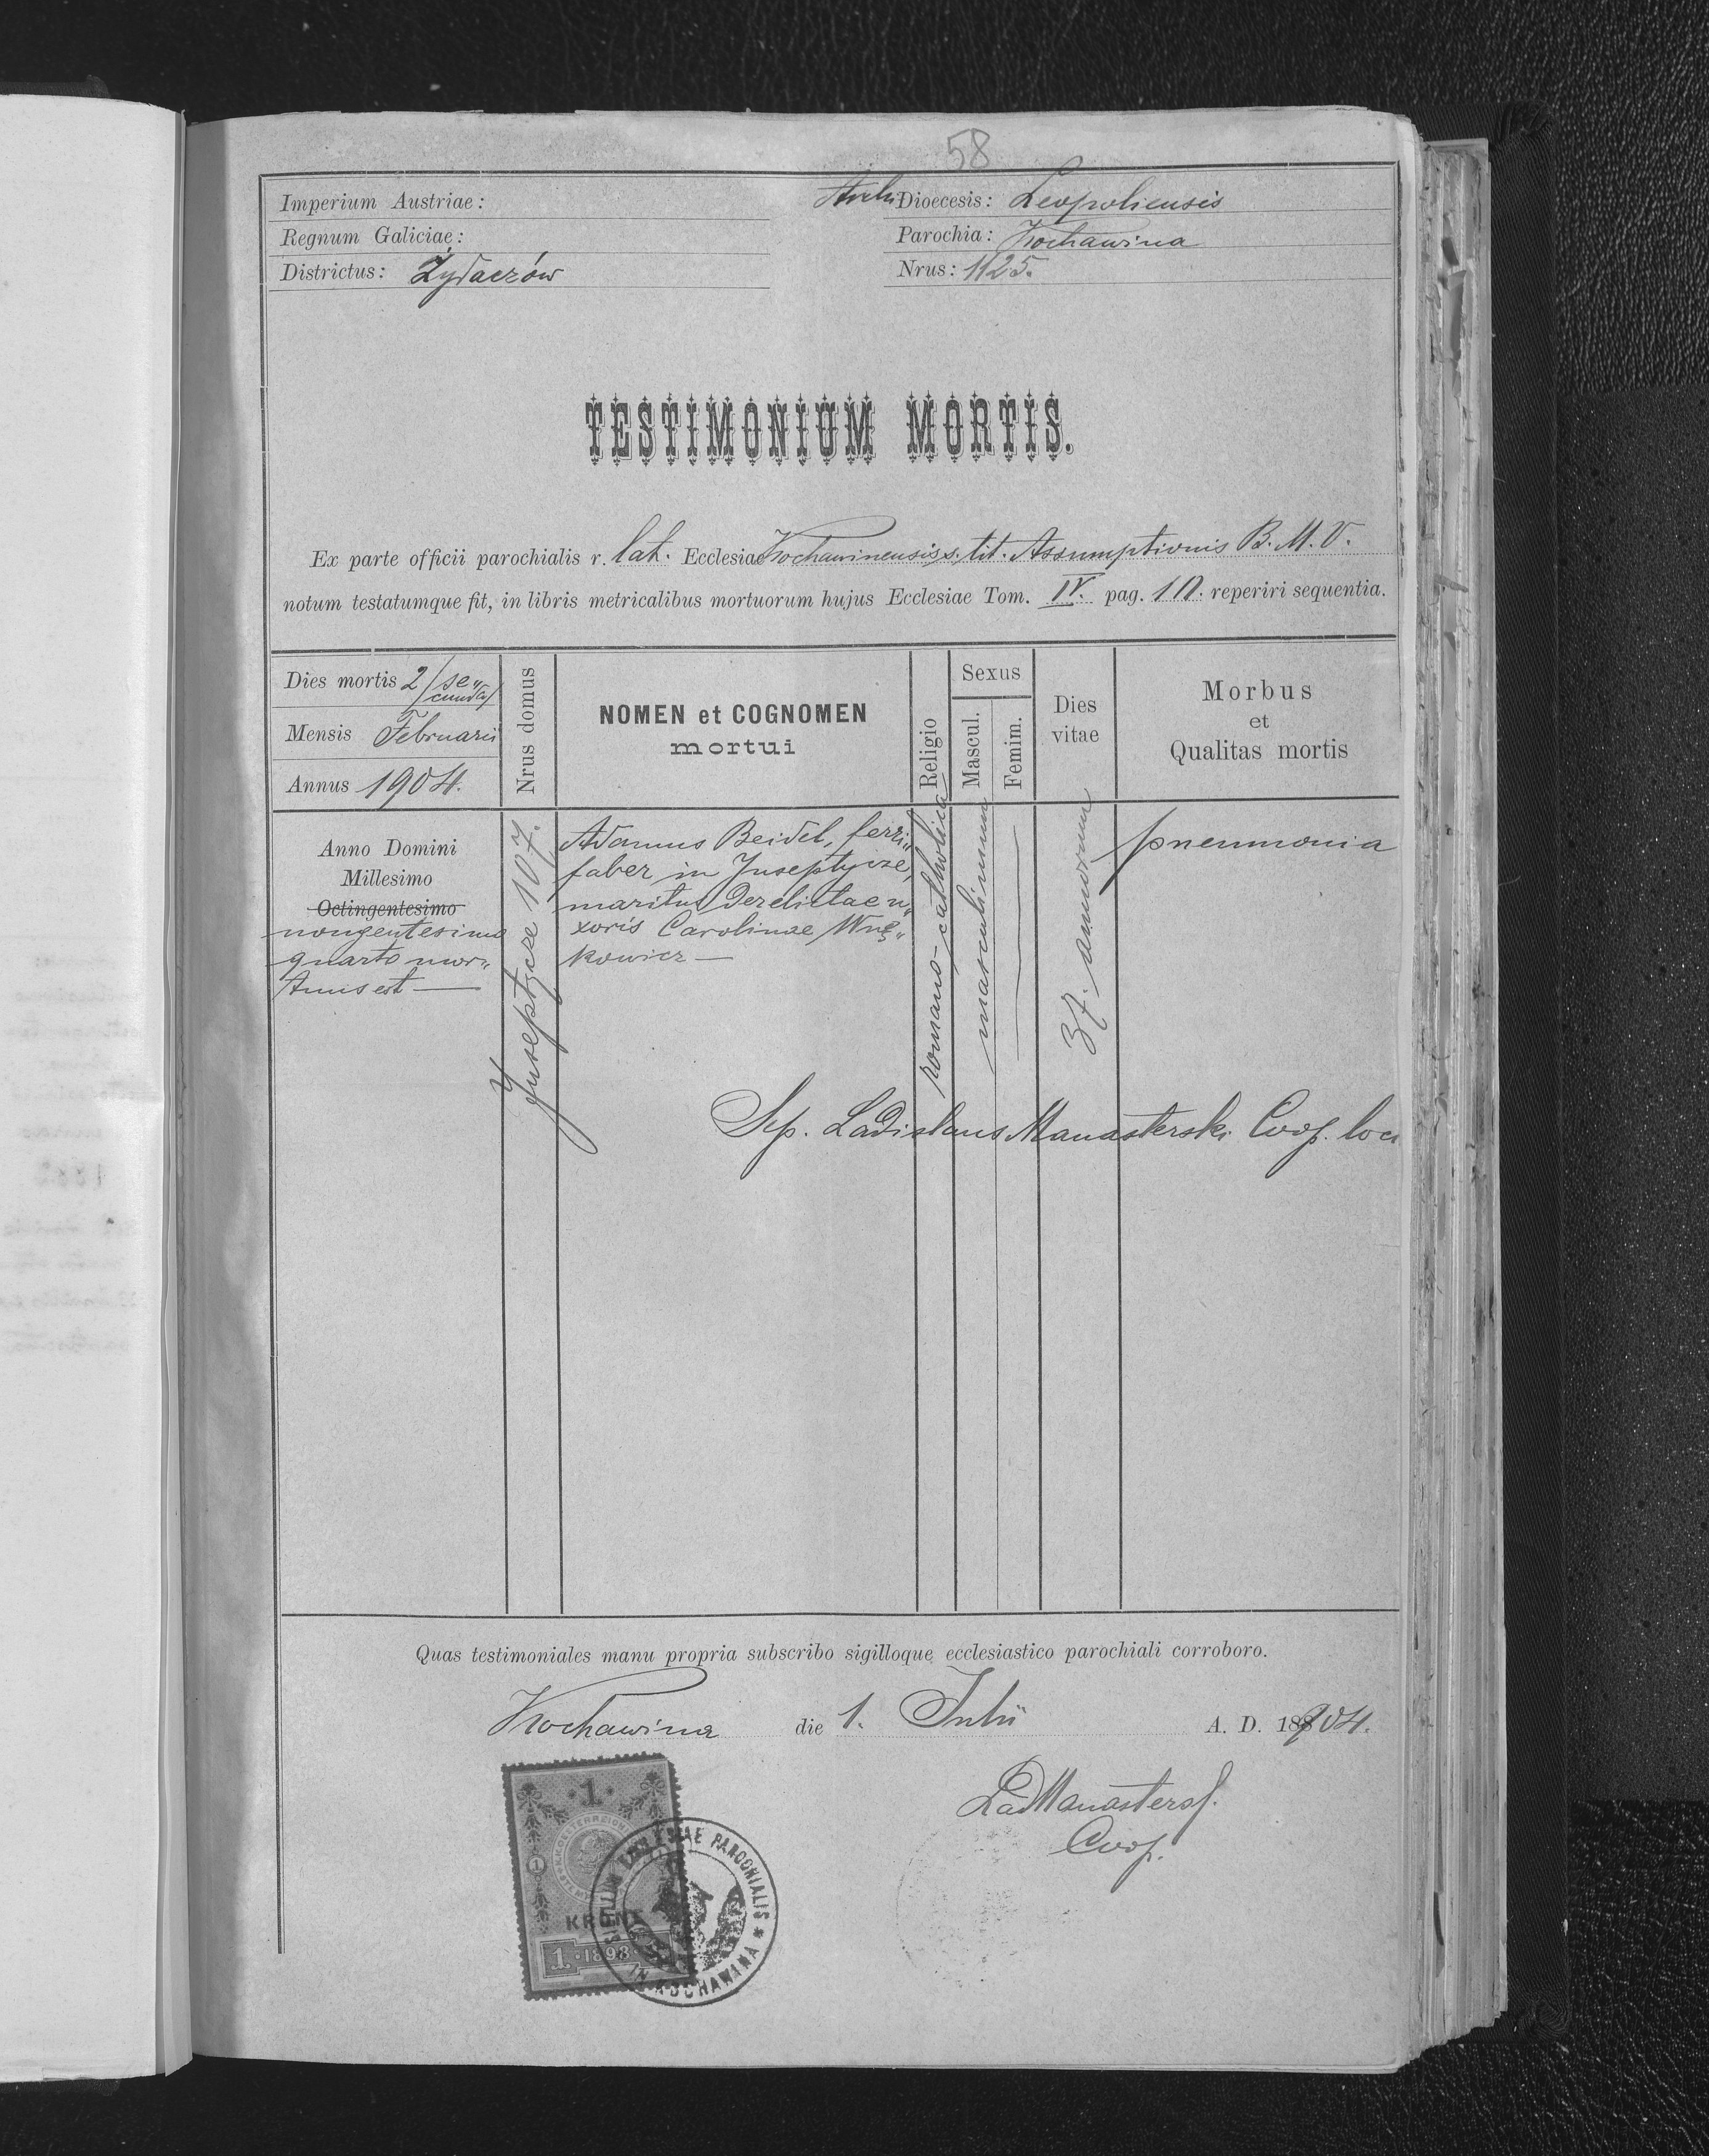 58
Imperium Austriae:
Regnum Galiciae:
Districtus: Żydaczów
Archi Dioecesis: Leopoliensis
Parochia: Kochawina
Nrus: 1125.
TESTIMONIUM MORTIS.
Ex parte officii parochialis r. lat. Ecclesiae Kochawinensis s. tit. Assumptionis B. M. V.
notum testatumque fit, in libris metricalibus mortuorum hujus Ecclesiae Tom. IV. pag. reperiri sequentia.
Dies mortis 2/se„
cunda/
Mensis Februarii
Annus 1904.
Nrus domus
NOMEN et COGNOMEN
mortui
Religio
Sexus
Mascul.
Femim.
Dies
vitae
Morbus
et
Qualitas mortis
Anno Domini
Millesimo
Octingentesimo
nongentesimo
quarto mor„
tuus est —
Juseptycze 107.
Adamus Beidel, ferri„
faber in Juseptycze,
maritus derelictae u„
xoris Carolinae Wnę„
kowicz —
romano-catholica
masculinum
37. annorum
pneumonia
Sep. Ladislaus Manasterski Coop. loci
Quas testimoniales manu propria subscribo sigilloque ecclesiastico parochiali corroboro.
Kochawina die 1. Julii A. D. 1904.
Lad Manasters.
Coop.
1
1
KRONE
1. 1898
SIGILLUM ECCLESIAE PAROCHIALIS * IN KOCHAWINA *